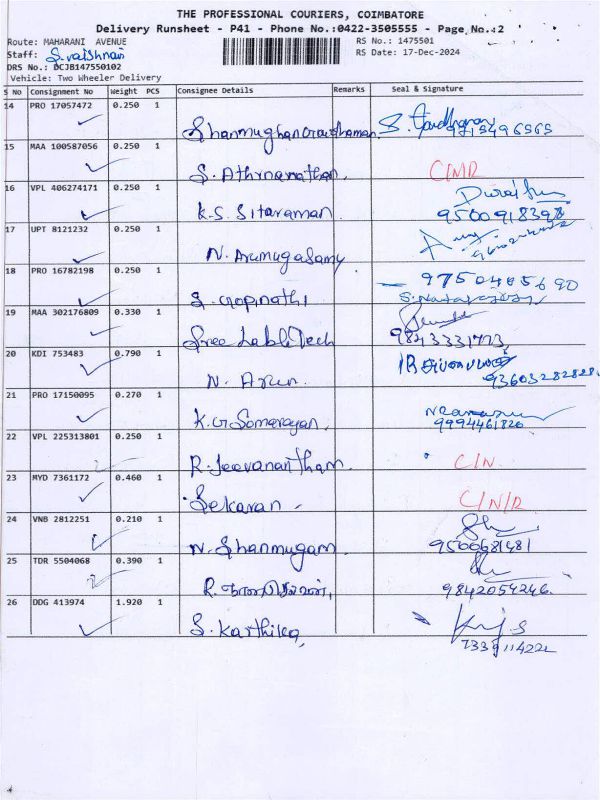 THE PROFESSIONAL COURIERS, COIMBATORE
Delivery Runsheet - P41 - Phone No.:0422-3505555 - Page No.:2
Route: MAHARANI AVENUE
RS No.: 1475501
Staff: S.vaishnavi
RS Date: 17-Dec-2024
DRS No.: DCJB147550102
Vehicle: Two Wheeler Delivery
S No Consignment No Weight PCS Consignee Details Remarks Seal & Signature
14 PRO 17057472 0.250 1
15 MAA 100587056 0.250 1 S. Athmanathan.
16 VPL 406274171 0.250 1 K.S. Sitaraman.
17 UPT 8121232 0.250 1 N. Arumugasamy
18 PRO 16782198 0.250 1 S. Gopinath
19 MAA 302176809 0.330 1 Sree Labli Tech
20 KDI 753483 0.790 1 N. Arun.
21 PRO 17150095 0.270 1 K.G Somarayan.
22 VPL 225313801 0.250 1 R. Jeevanantham. C/N.
23 MYD 7361172 0.460 1 Sekaran. C/N/R
24 VNB 2812251 0.210 1 N. Shanmugam 9500681481
25 TDR 5504068 0.390 1 9842054246.
26 DDG 413974 1.920 1 S. Karthika,